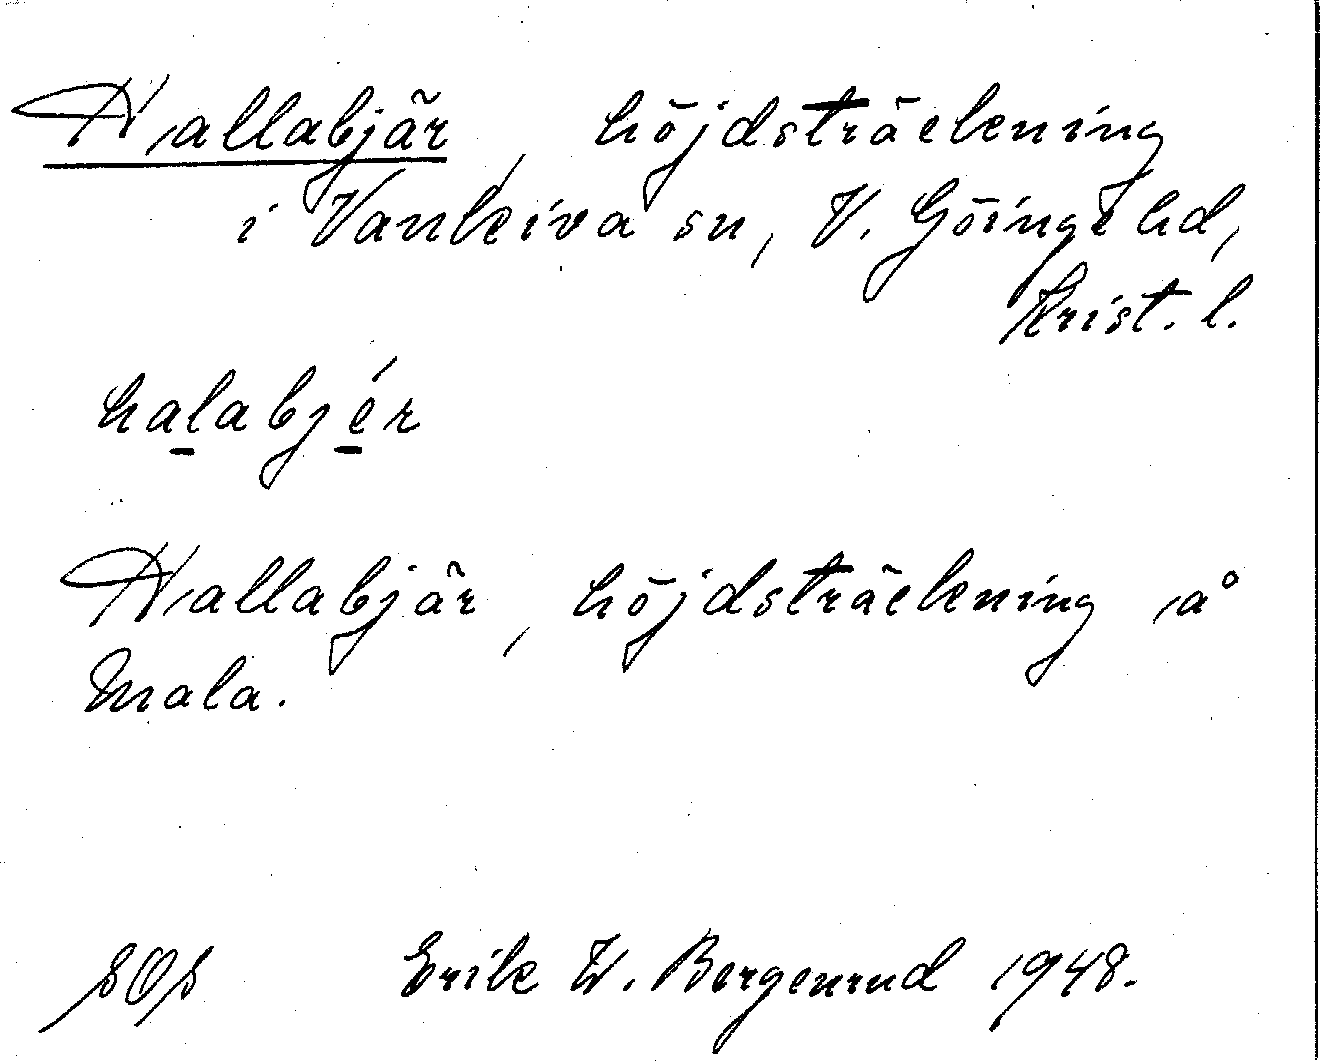 Hallabjär, höjdsträckning
i Vankiva sn, V. Göinge hd,
Krist. l.
halabjér
Hallabjär, höjdsträckning å
Mala.
SOS Erik W. Bergenrud 1948.